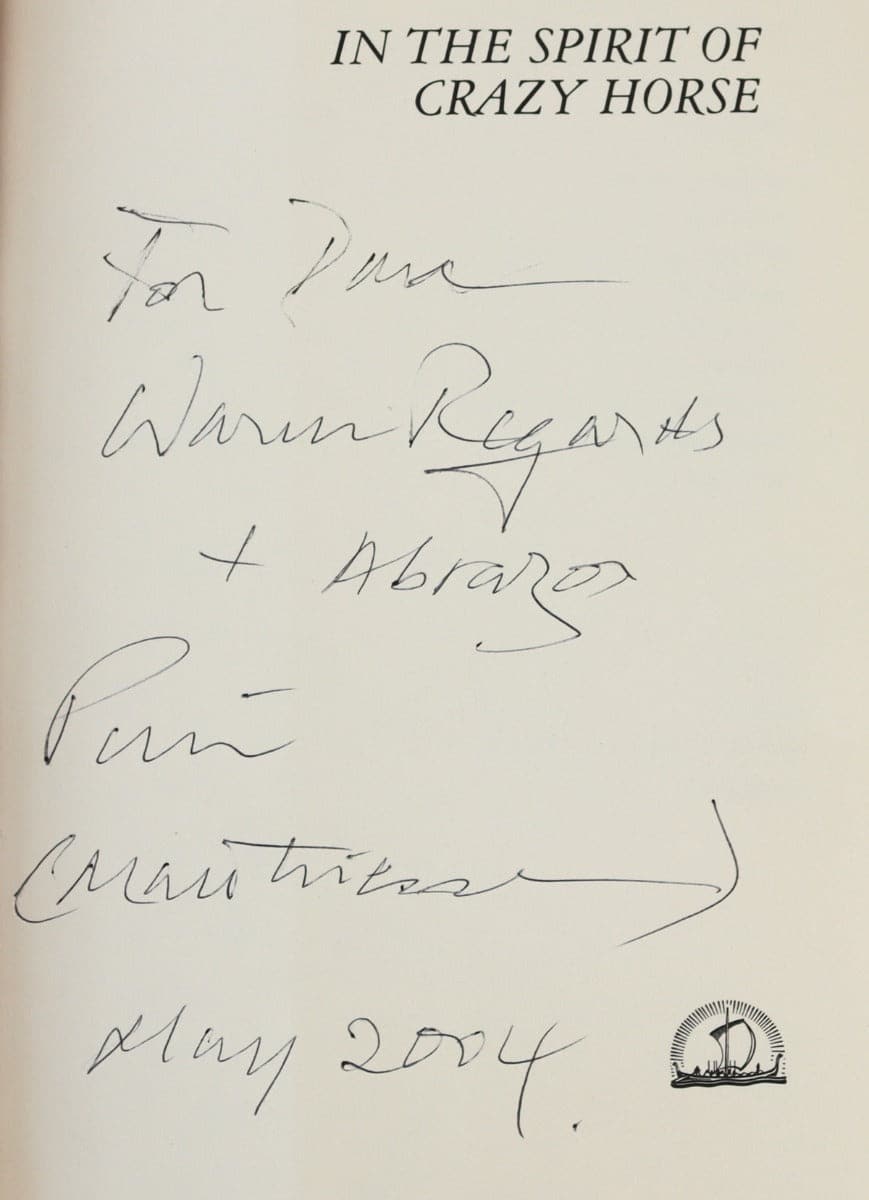 IN THE SPIRIT OF
CRAZY HORSE
For
Warm Regards
+ Abrazos
Peter
(Matthiessen)
May 2004.